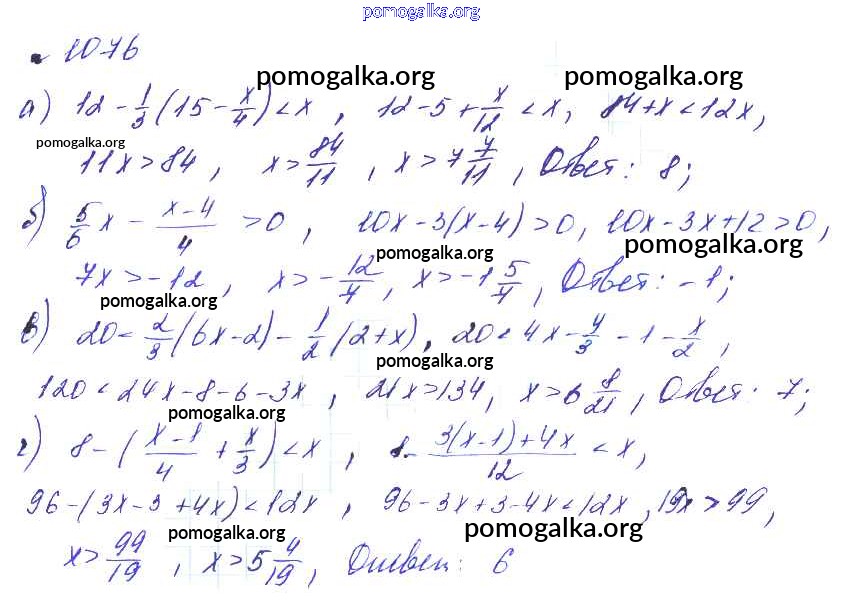 pomogalka.org
1076
pomogalka.org pomogalka.org
а) 12 - 1/3 (15 - x/4) < x, 12 - 5 + x/12 < x, 84 + x < 12x,
pomogalka.org
11x > 84, x > 84/11, x > 7 7/11, Ответ: 8;
б) 5/6 x - (x-4)/4 > 0, 10x - 3(x-4) > 0, 10x - 3x + 12 > 0,
pomogalka.org pomogalka.org
7x > -12, x > -12/7, x > -1 5/7, Ответ: -1;
pomogalka.org
в) 20 < 2/3 (6x-2) - 1/2 (2+x), 20 < 4x - 4/3 - 1 - x/2,
pomogalka.org
120 < 24x - 8 - 6 - 3x, 21x > 134, x > 6 8/21, Ответ: 7;
pomogalka.org
г) 8 - ((x-1)/4 + x/3) < x, 8 - (3(x-1)+4x)/12 < x,
96 - (3x - 3 + 4x) < 12x, 96 - 3x + 3 - 4x < 12x, 19x > 99,
pomogalka.org pomogalka.org
x > 99/19, x > 5 4/19, Ответ: 6